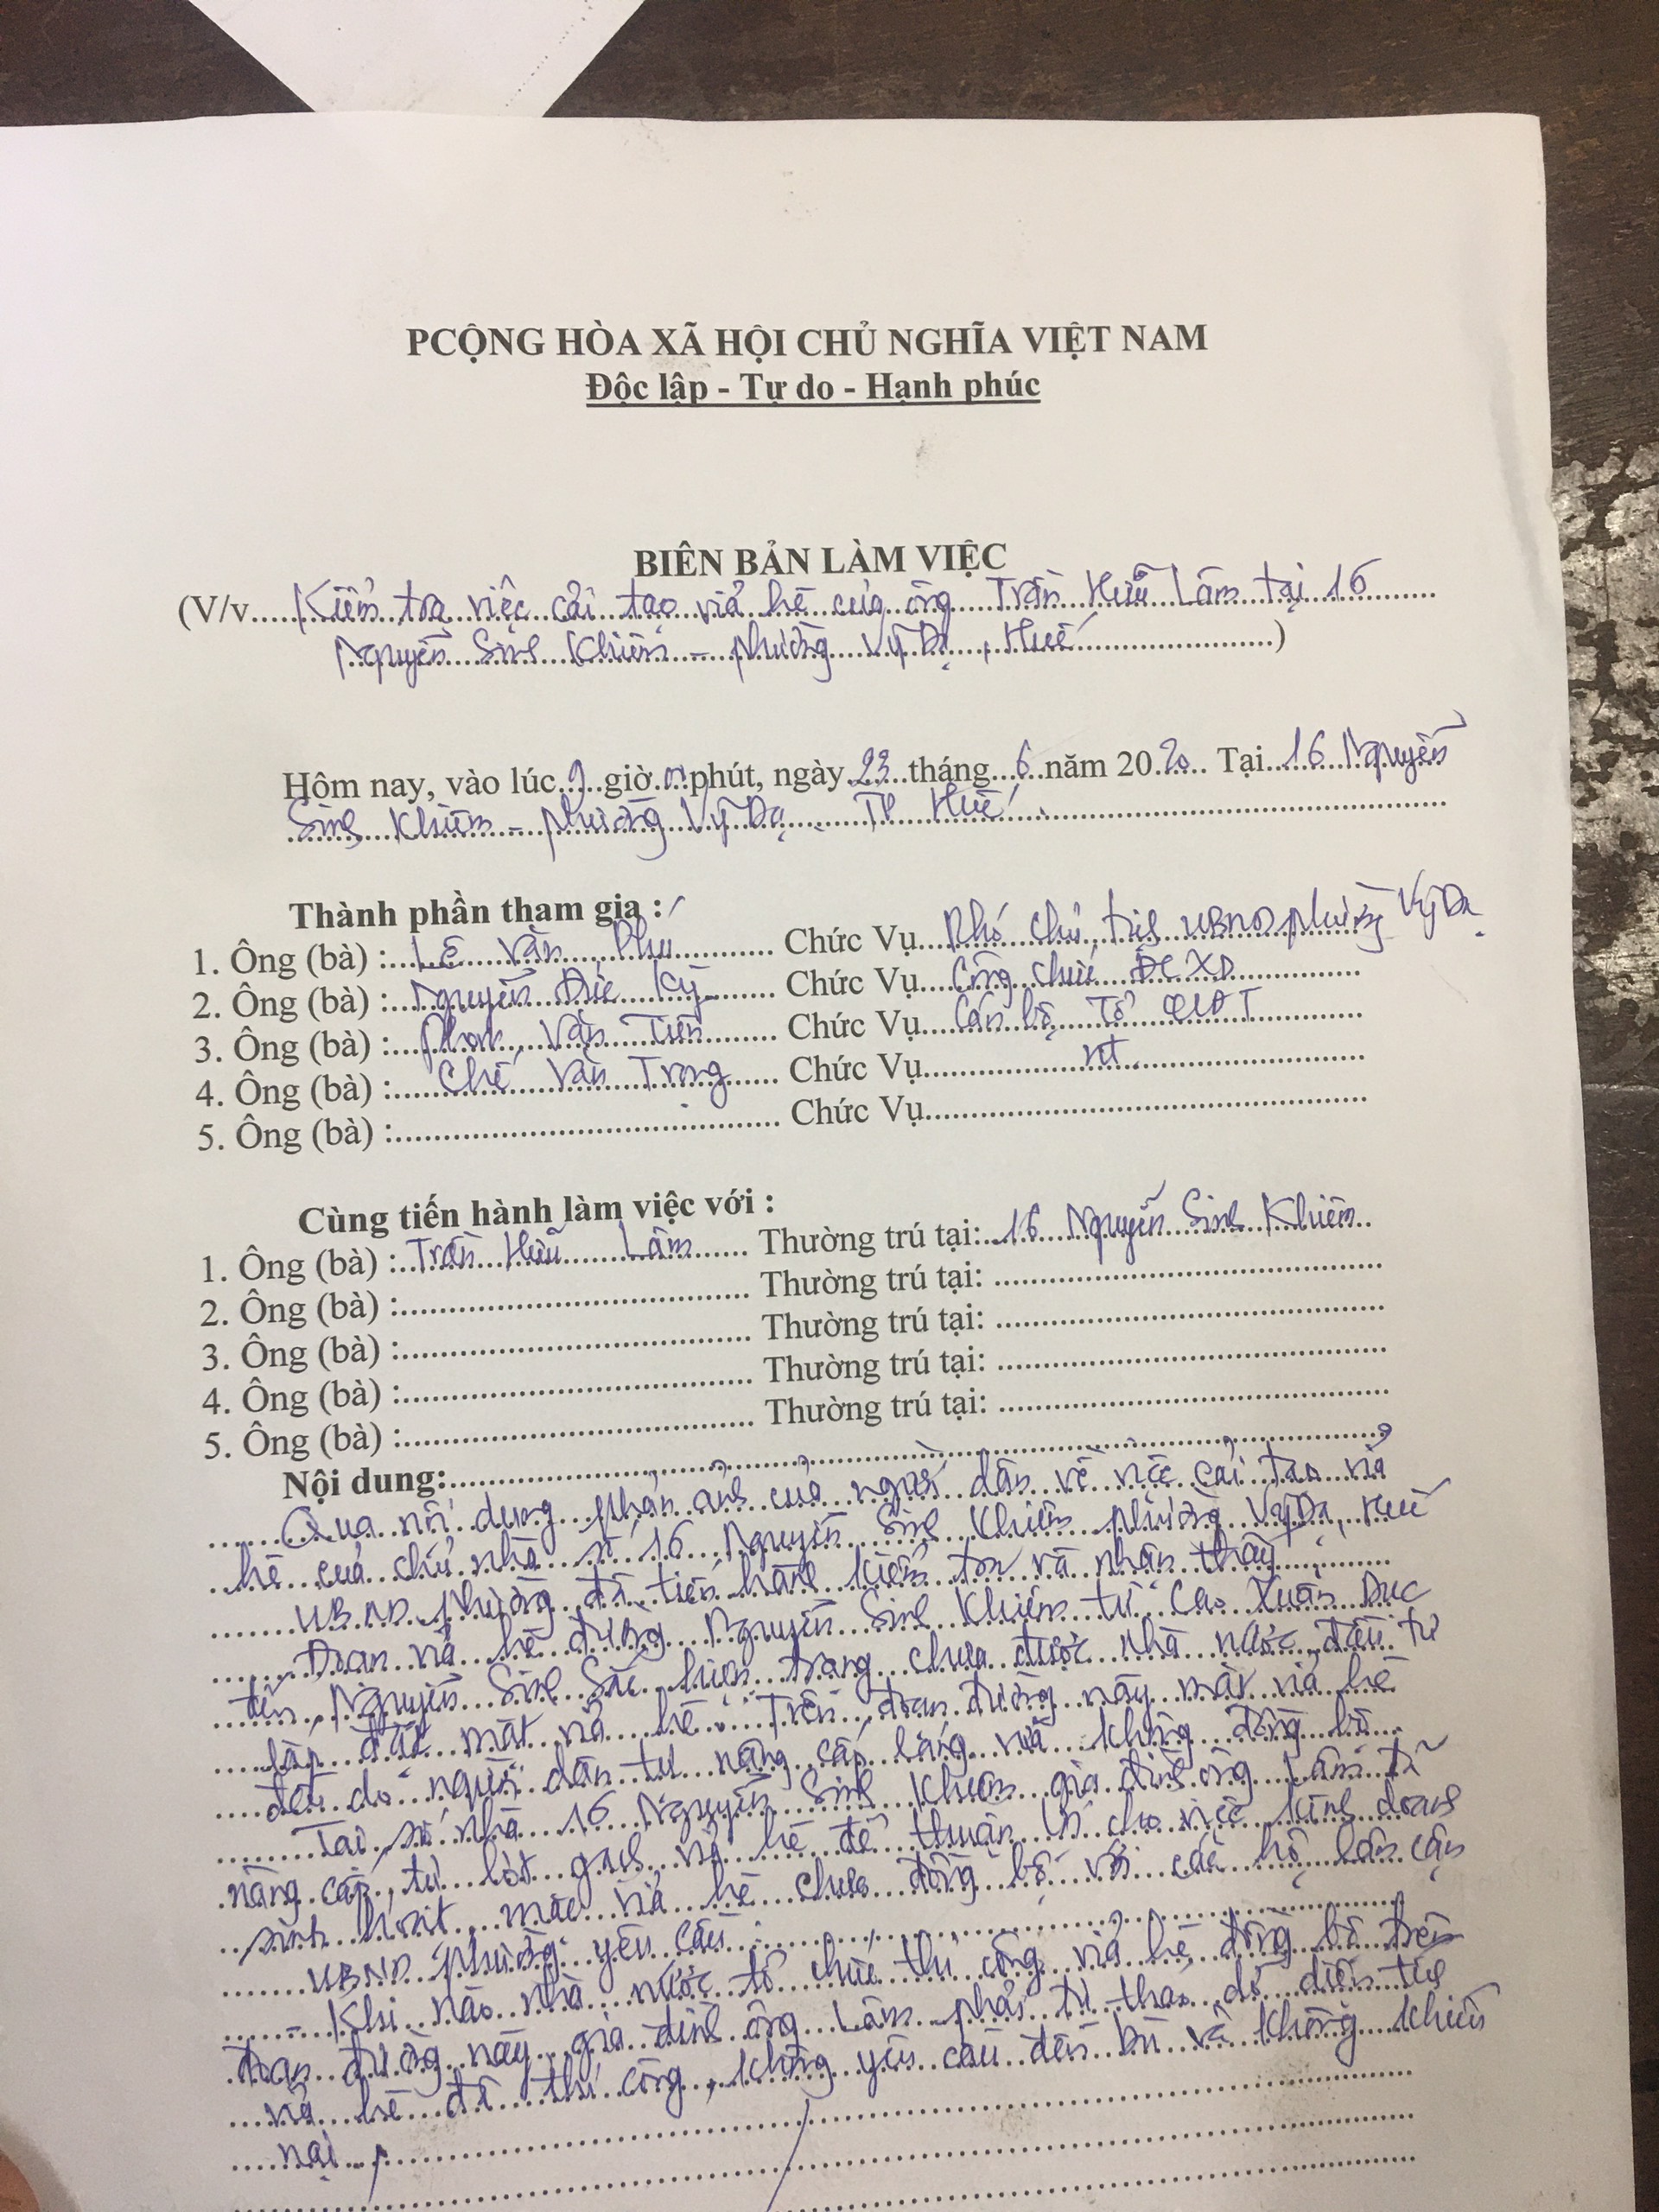 PCỘNG HÒA XÃ HỘI CHỦ NGHĨA VIỆT NAM
Độc lập - Tự do - Hạnh phúc
BIÊN BẢN LÀM VIỆC
(V/v.....Kiểm tra việc cải tạo vỉa hè của ông Trần Hữu Lâm tại 16......
Nguyễn Sinh Khiêm - phường Vỹ Dạ, Huế......)
Hôm nay, vào lúc 9 giờ phút, ngày 23 tháng 6 năm 2020. Tại 16 Nguyễn
Sinh Khiêm - phường Vỹ Dạ - TP Huế.
Thành phần tham gia :
1. Ông (bà) : Lê Văn Phu Chức Vụ Phó chủ tịch UBND phường Vỹ Dạ
2. Ông (bà) : Nguyễn Đức Kỳ Chức Vụ Công chức ĐC XD
3. Ông (bà) : Phan Văn Tiến Chức Vụ Cán bộ Tổ QLĐT
4. Ông (bà) : Chế Văn Trong Chức Vụ nt
5. Ông (bà) :...... Chức Vụ......
Cùng tiến hành làm việc với :
1. Ông (bà) : Trần Hữu Lâm Thường trú tại: 16 Nguyễn Sinh Khiêm
2. Ông (bà) :...... Thường trú tại: ......
3. Ông (bà) :...... Thường trú tại: ......
4. Ông (bà) :...... Thường trú tại: ......
5. Ông (bà) :...... Thường trú tại: ......
Nội dung:......
Qua nội dung phản ánh của người dân về việc cải tạo vỉa
hè của chủ nhà số 16 Nguyễn Sinh Khiêm phường Vỹ Dạ, Huế
UBND phường đã tiến hành kiểm tra và nhận thấy :
Đoạn vỉa hè đường Nguyễn Sinh Khiêm từ Cao Xuân Dục
đến Nguyễn Sinh Sắc hiện trạng chưa được nhà nước đầu tư
lắp đặt mặt vỉa hè. Trên đoạn đường này mặt vỉa hè
đều do người dân tự nâng cấp láng vữa không đồng bộ.
Tại số nhà 16 Nguyễn Sinh Khiêm gia đình ông Lâm đã
nâng cấp, tự lót gạch vỉa hè để thuận lợi cho việc kinh doanh
sinh hoạt, mặt vỉa hè chưa đồng bộ với các hộ lân cận
UBND phường yêu cầu :
- Khi nào nhà nước tổ chức thi công vỉa hè đồng bộ trên
đoạn đường này gia đình ông Lâm phải tự tháo dỡ diện tích
vỉa hè đã thi công, không yêu cầu đền bù và không khiếu
nại.